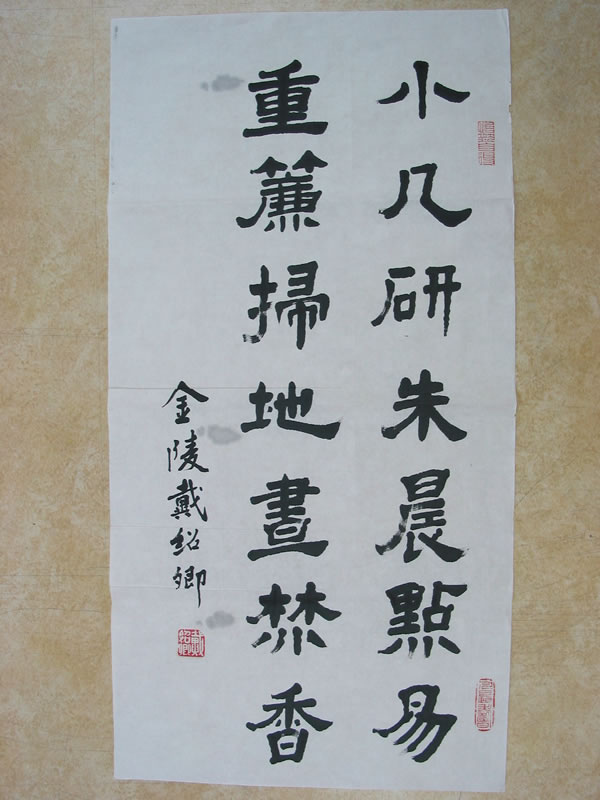 小几研朱晨點易
重簾掃地晝焚香
金陵戴紹卿